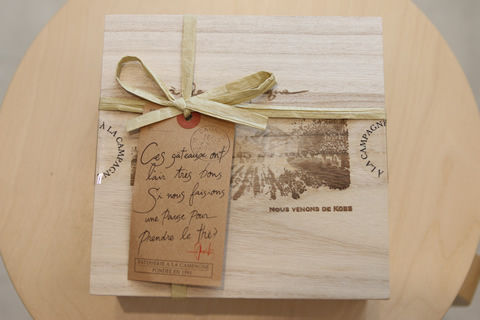 Ces gâteaux ont
l'air très bons
Si nous faisions
une Pause Pour
prendre le thé?
PATISSERIE A LA CAMPAGNE
FONDÉE EN 1991
À LA CAMPAGNE
À LA CAMPAGNE
NOUS VENONS DE KOBE